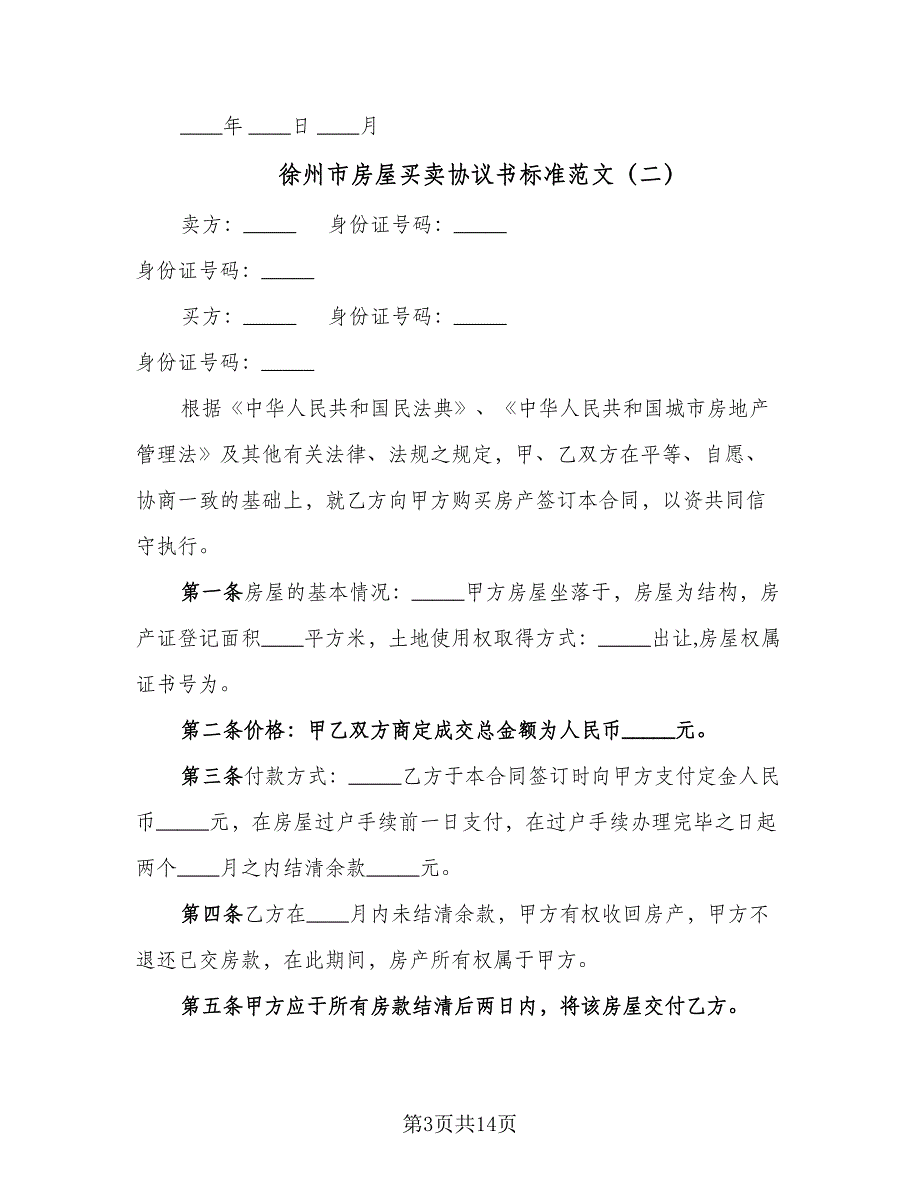 ____年 ____日 ____月
徐州市房屋买卖协议书标准范文（二）
卖方：_____ 身份证号码：_____
身份证号码：_____
买方：_____ 身份证号码：_____
身份证号码：_____
根据《中华人民共和国民法典》、《中华人民共和国城市房地产
管理法》及其他有关法律、法规之规定，甲、乙双方在平等、自愿、
协商一致的基础上，就乙方向甲方购买房产签订本合同，以资共同信
守执行。
第一条房屋的基本情况：_____甲方房屋坐落于，房屋为结构，房
产证登记面积____平方米，土地使用权取得方式：_____出让,房屋权属
证书号为。
第二条价格：甲乙双方商定成交总金额为人民币_____元。
第三条付款方式：_____乙方于本合同签订时向甲方支付定金人民
币_____元，在房屋过户手续前一日支付，在过户手续办理完毕之日起
两个____月之内结清余款_____元。
第四条乙方在____月内未结清余款，甲方有权收回房产，甲方不
退还已交房款，在此期间，房产所有权属于甲方。
第五条甲方应于所有房款结清后两日内，将该房屋交付乙方。
第3页共14页